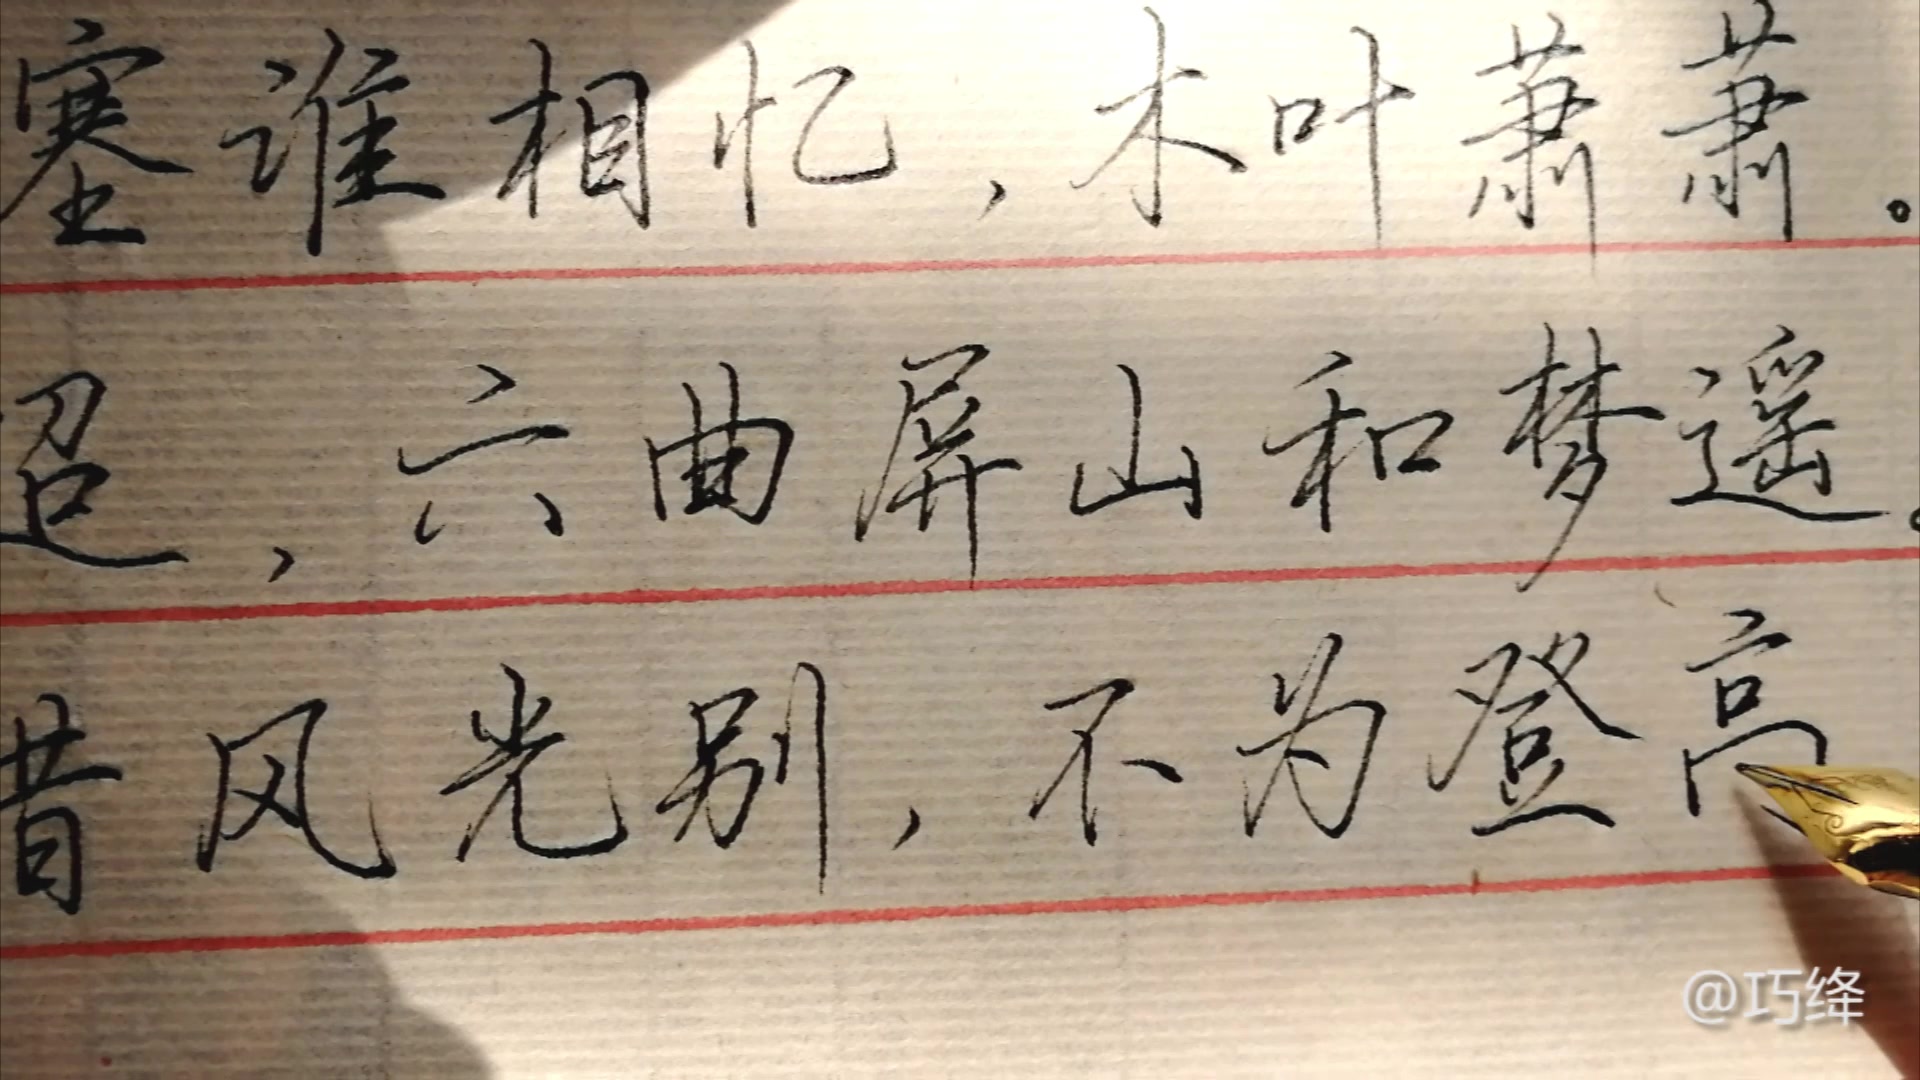 塞谁相忆，木叶萧萧。
迢，六曲屏山和梦遥。
惜风光别，不为登高
@巧绛